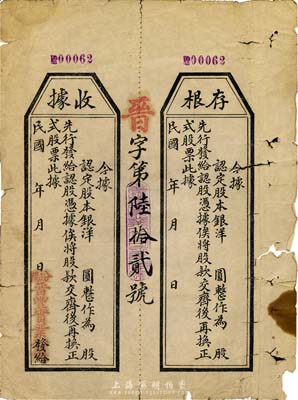 №00062
№00062
存根
今據
認定股本銀洋　圓整作為　股
先行發給認股憑據俟將股款交齊後再換正
式股票此據
民國　年　月　日
晋字第陸拾貳號
收據
今據
認定股本銀洋　圓整作為　股
先行發給認股憑據俟將股款交齊後再換正
式股票此據
民國　年　月　日
發給
上海陽明拍卖